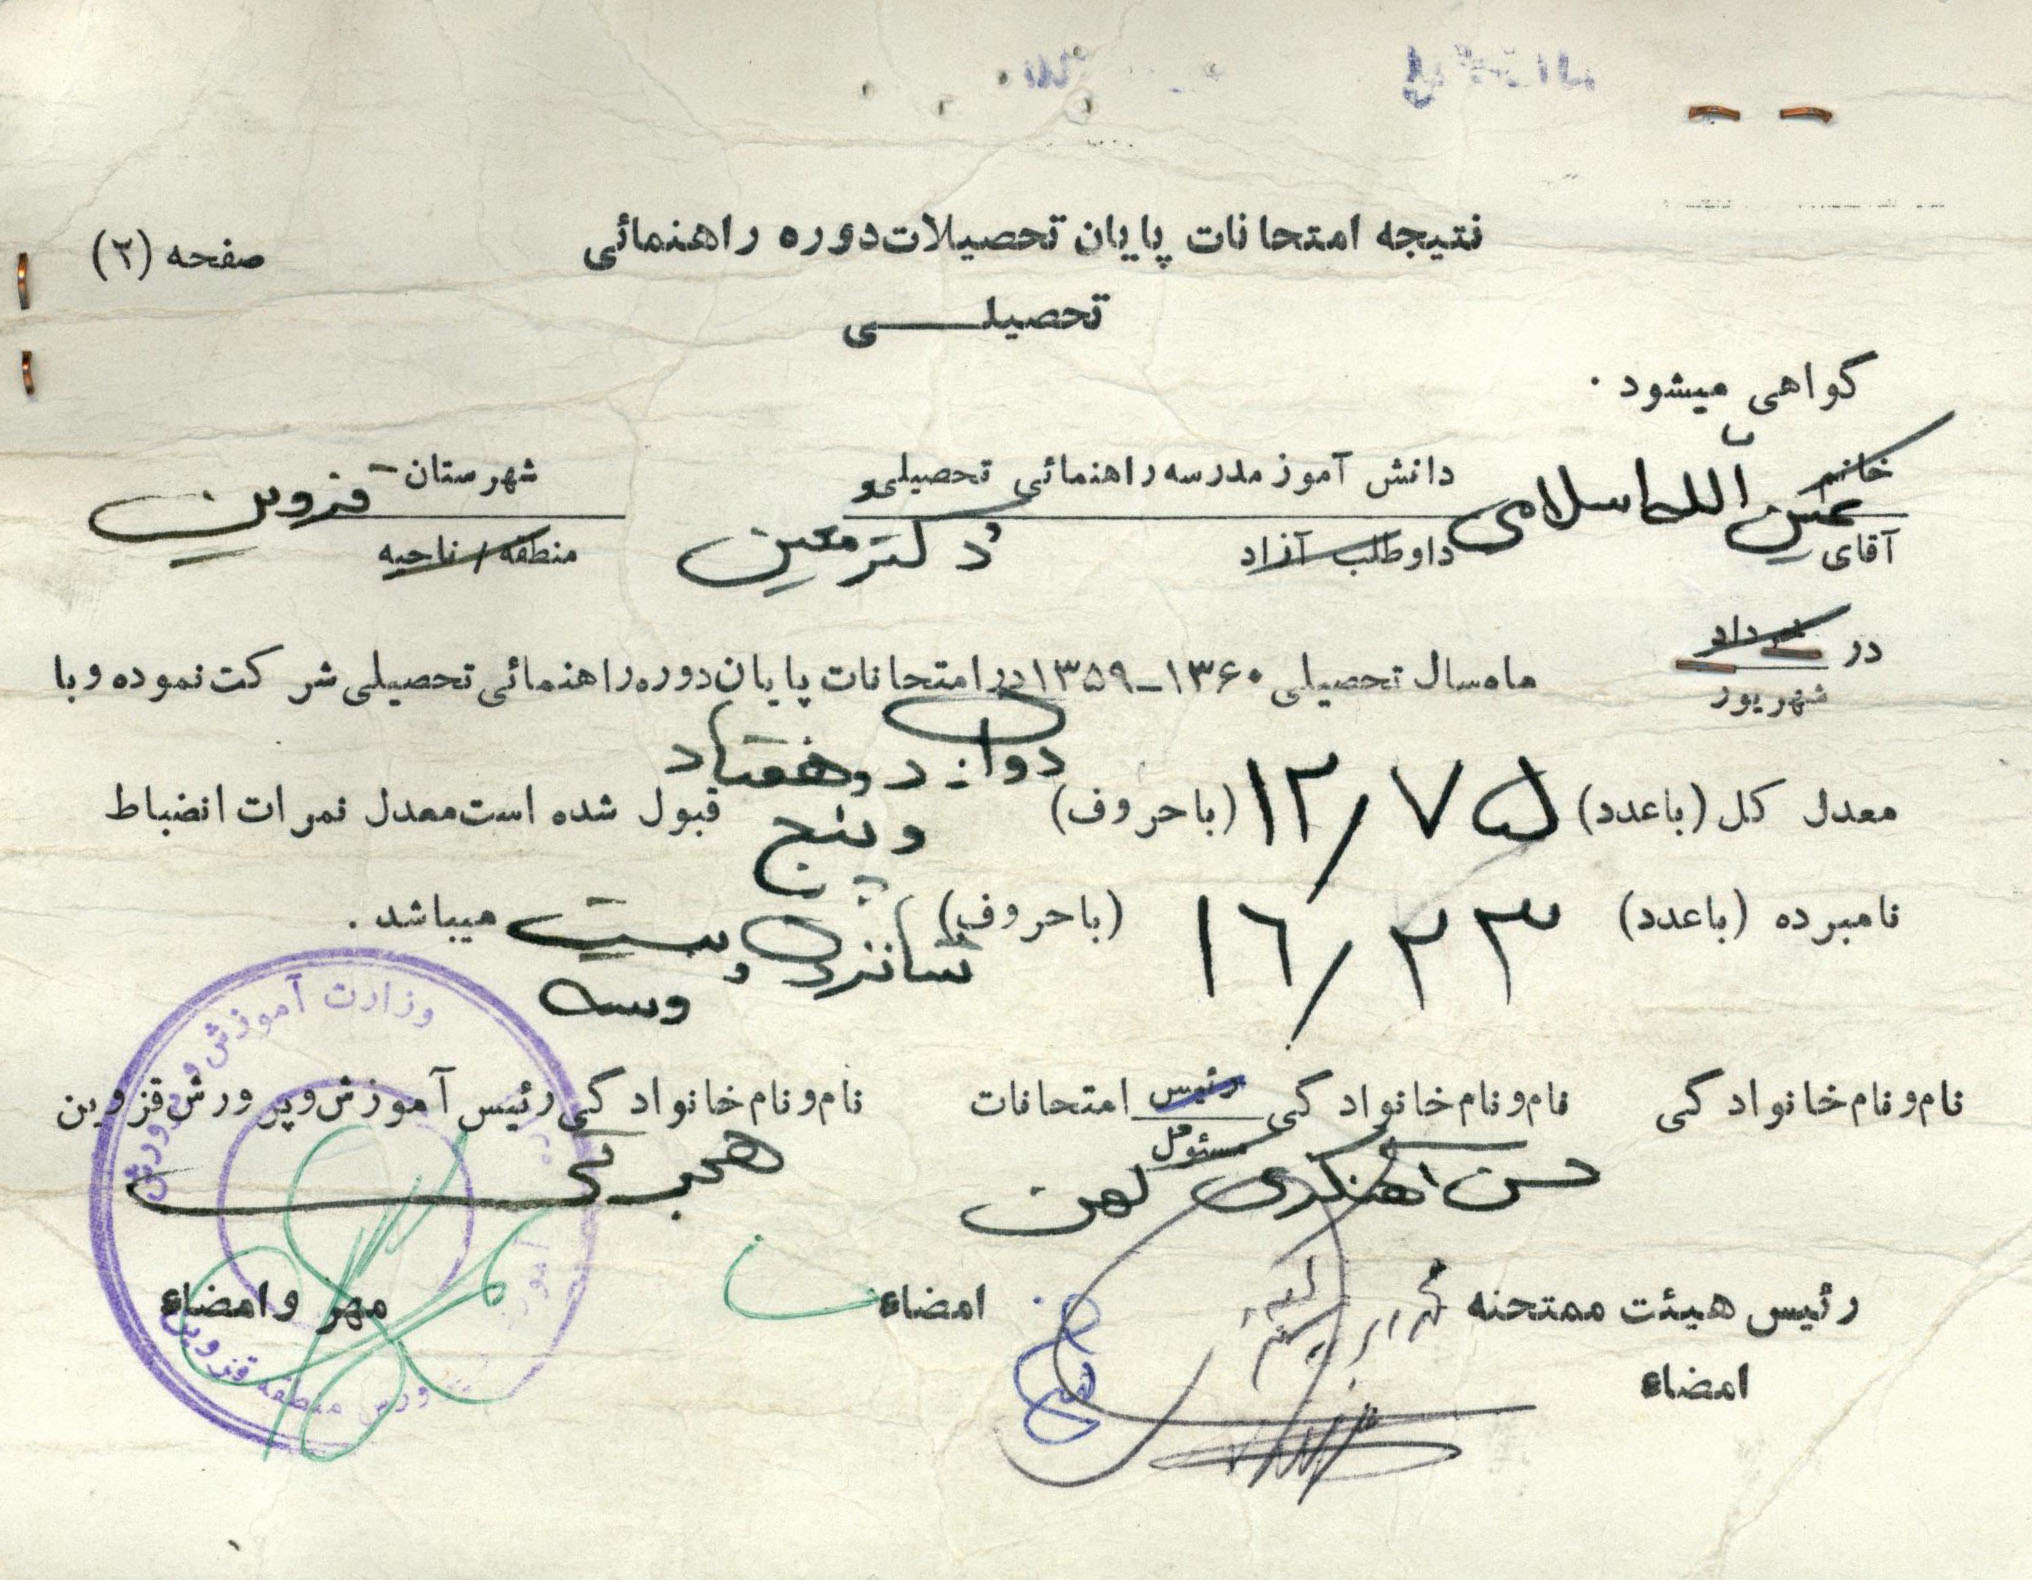 نتیجه امتحانات پایان تحصیلات دوره راهنمائی
صفحه (۲)
تحصیلی
گواهی میشود .
خانم
آقای
عین الله اسلامی
دانش آموز مدرسه راهنمائی تحصیلی
داوطلب آزاد
دکتر معین
شهرستان
منطقه / ناحیه
قزوین
در خرداد
شهریور
ماه سال تحصیلی ۱۳۶۰-۱۳۵۹ در امتحانات پایان دوره راهنمائی تحصیلی شرکت نموده و با
معدل کل (باعدد) ۱۲/۷۵ (باحروف) دوازده و هفتاد و پنج قبول شده است معدل نمرات انضباط
نامبرده (باعدد) ۱۶/۲۳ (باحروف) شانزده و بیست و سه میباشد .
نام و نام خانوادگی
رئیس هیئت ممتحنه
امضاء
نام و نام خانوادگی رئیس امتحانات
مسئول
حسن آهنگری کهن
امضاء
نام و نام خانوادگی رئیس آموزش و پرورش قزوین
مهر و امضاء
وزارت آموزش و پرورش
منطقه قزوین